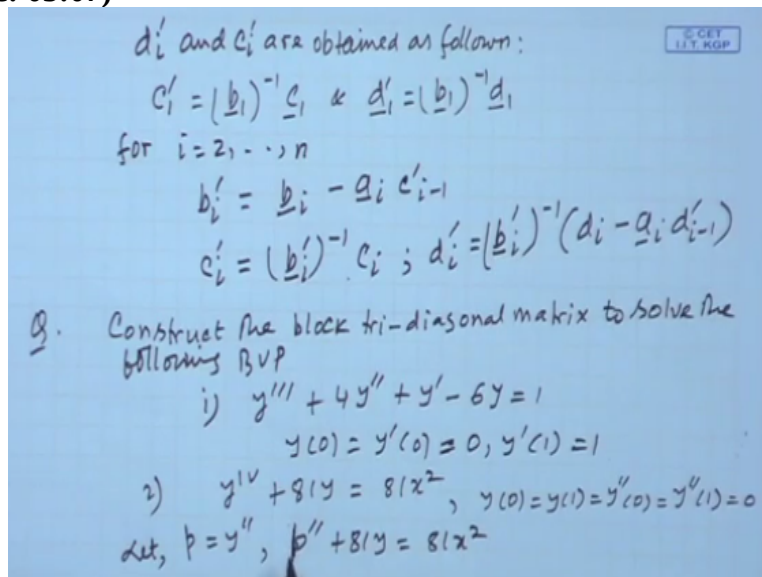 d_i' and c_i' are obtained as follown:
© CET
I.I.T. KGP
c_1' = (b_1)^{-1} c_1 & d_1' = (b_1)^{-1} d_1
for i = 2, . . , n
b_i' = b_i - a_i c'_{i-1}
c_i' = (b_i')^{-1} c_i ; d_i' = (b_i')^{-1} (d_i - a_i d'_{i-1})
Q. Construct the block tri-diagonal matrix to solve the
following BVP
i) y''' + 4y'' + y' - 6y = 1
y(0) = y'(0) = 0, y'(1) = 1
2) y^{IV} + 81y = 81x^2, y(0) = y(1) = y''(0) = y''(1) = 0
Let, p = y'', p'' + 81y = 81x^2